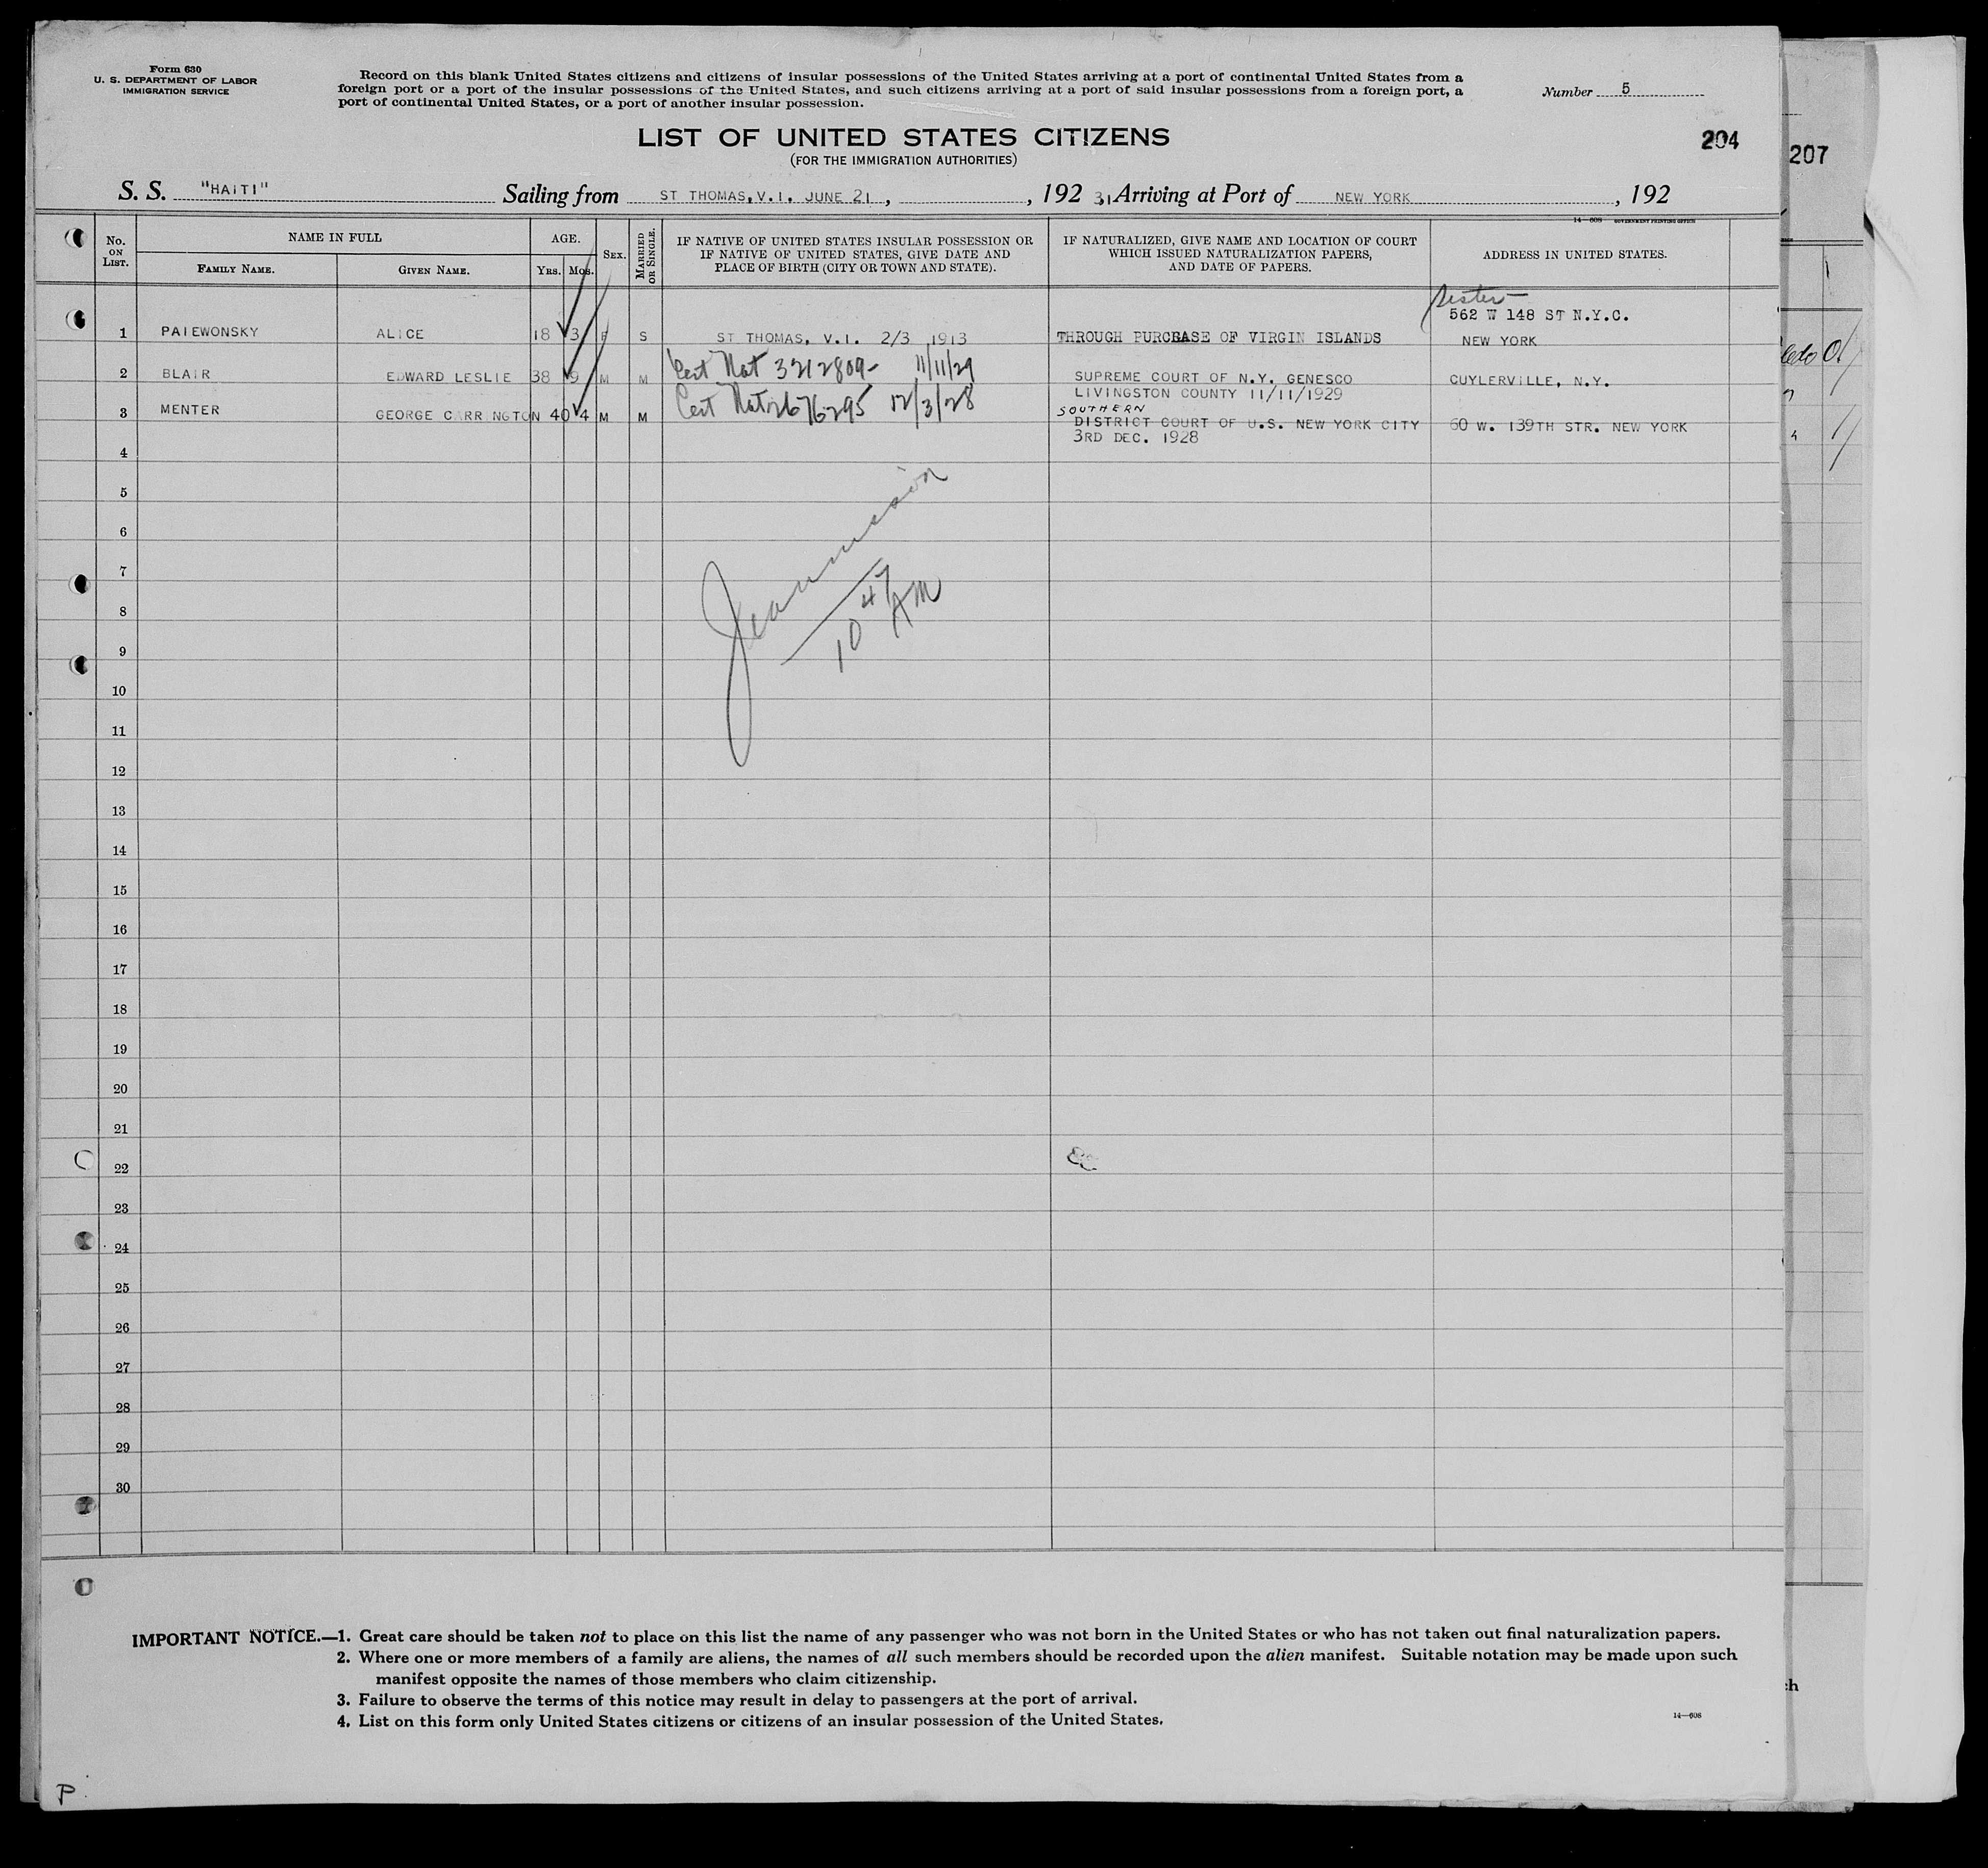 Form 630
U. S. DEPARTMENT OF LABOR
IMMIGRATION SERVICE
Record on this blank United States citizens and citizens of insular possessions of the United States arriving at a port of continental United States from a
foreign port or a port of the insular possessions of the United States, and such citizens arriving at a port of said insular possessions from a foreign port, a
port of continental United States, or a port of another insular possession.
Number 5
LIST OF UNITED STATES CITIZENS
(FOR THE IMMIGRATION AUTHORITIES)
204
207
S. S. "HAITI" Sailing from ST THOMAS, V.I. JUNE 21, , 192 31 Arriving at Port of NEW YORK , 192
14—608 GOVERNMENT PRINTING OFFICE
No. ON LIST.
NAME IN FULL
FAMILY NAME.
GIVEN NAME.
AGE.
YRS. MOS.
SEX.
MARRIED OR SINGLE.
IF NATIVE OF UNITED STATES INSULAR POSSESSION OR
IF NATIVE OF UNITED STATES, GIVE DATE AND
PLACE OF BIRTH (CITY OR TOWN AND STATE).
IF NATURALIZED, GIVE NAME AND LOCATION OF COURT
WHICH ISSUED NATURALIZATION PAPERS,
AND DATE OF PAPERS.
ADDRESS IN UNITED STATES.
sister
562 W 148 ST N.Y.C.
1 PAIEWONSKY ALICE 18 3 F S ST THOMAS, V.I. 2/3 1913 THROUGH PURCHASE OF VIRGIN ISLANDS NEW YORK
2 BLAIR EDWARD LESLIE 38 9 M M Cert Nat 3212809- 11/11/29 SUPREME COURT OF N.Y. GENESCO CUYLERVILLE, N.Y.
LIVINGSTON COUNTY 11/11/1929
3 MENTER GEORGE CARRINGTON 40 4 M M Cert Nat 2676295 12/3/28 SOUTHERN
DISTRICT COURT OF U.S. NEW YORK CITY 60 W. 139TH STR. NEW YORK
3RD DEC. 1928
4
5
6
7
10 47 AM
8
9
10
11
12
13
14
15
16
17
18
19
20
21
22
23
24
25
26
27
28
29
30
IMPORTANT NOTICE.—1. Great care should be taken not to place on this list the name of any passenger who was not born in the United States or who has not taken out final naturalization papers.
2. Where one or more members of a family are aliens, the names of all such members should be recorded upon the alien manifest. Suitable notation may be made upon such
manifest opposite the names of those members who claim citizenship.
3. Failure to observe the terms of this notice may result in delay to passengers at the port of arrival.
4. List on this form only United States citizens or citizens of an insular possession of the United States.
14—608
P